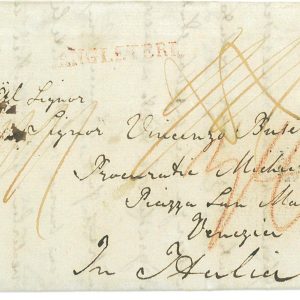 ANGLETERRE
Al Signor
Signor Vincenzo
Procuratie
Piazza San Ma
Venezia
In Italia